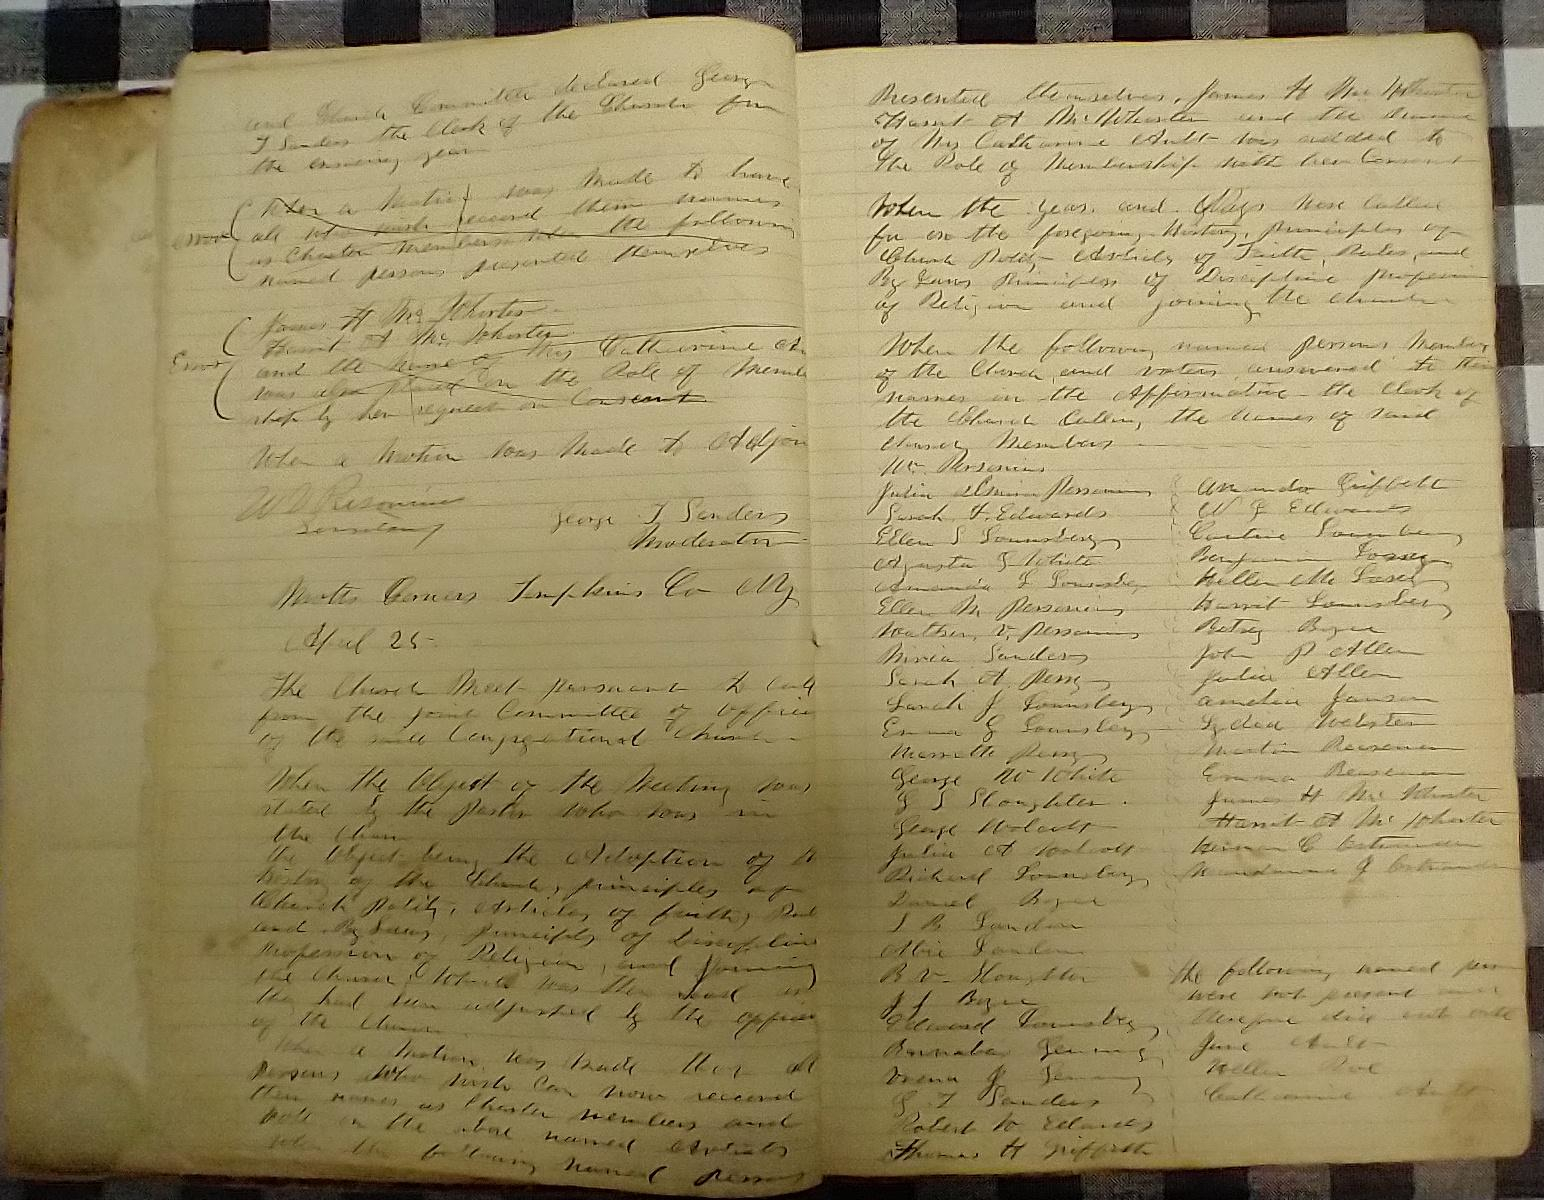 and Church Committee declared George
T Sanders the Clerk of the Church for
the ensuing year
When a Motion was Made to have
all who wish record them names
as Charter Members when the following
named persons presented themselves
error
James H McWhorter
Harrit A McWhorter
and the name of Mrs Catharine
was also placed on the Role of
ship by her request or Consent
Error
When a Motion was Made to Adjorn
W V Personius
Secretary
George T Sanders
Moderator
Motts Corners Tompkins Co NY
April 25
The Church Meet persuant to call
from the joint Committee of officers
of the said Congregational Church
When the Object of the Meeting was
stated by the pastor who was in
the Chair
the Object being the Adoption of
history of the Church, principles of
Church polity, Articles of faith, Rules
and By Laws, principles of Discipline
profession of Religion, and joining
the Church; Which was then read as
they had been adjusted by the officers
of the Church
When a Motion was Made that all
persons who wish can now record
their names as Charter members and
vote on the above named Articles
When the following named persons
Presented themselves, James H McWhorter
Harrit A McWhorter and the name
of Mrs Catharine Ault was added to
the Role of Membership with her Consent
When the yeas and Nays were Called
for on the foregoing History, principles of
Church Polity Articles of Faith, Rules, and
By Laws Principles of Discipline profession
of Religion and joining the church
When the following named persons Members
of the Church and voters answered to their
names in the Affirmative the Clerk of
the Church Calling the Names of said
Church Members
Wm Personius
Julia Personius
Sarah F. Edwards
Ellen S Lounsbery
Agusta G White
Amanda L Lounsbery
Ellen M Personius
V. Personius
Sanders
Sarah A. Perry
Sarah J Lounsbery
Emma G Lounsbery
Marrette Perry
George W White
G S Slaughter.
George Wolcott
Julia A Wolcott
Richard Lounsbery
Daniel Boyce
S B Landon
Landon
B V Slaughter
J J Boyce
Edward Lounsbery
Barnabas Genung
J Genung
G T Sanders
Robert W Edwards
Thomas H Griffeth
Amanda Griffeth
W G Edwards
Caroline Lounsbery
Benjamin Losey
Hellen M Losey
Harrit Lounsbery
Betsy Boyce
John P Allen
Julia Allen
Amelia Janson
Lydia Webster
Martin
Emma
James H McWhorter
Harrit A McWhorter
C Ostrander
J Ostrander
The following named persons
were not present and
therefore did not vote
Jane Ault
Hellen Roe
Catharine Ault